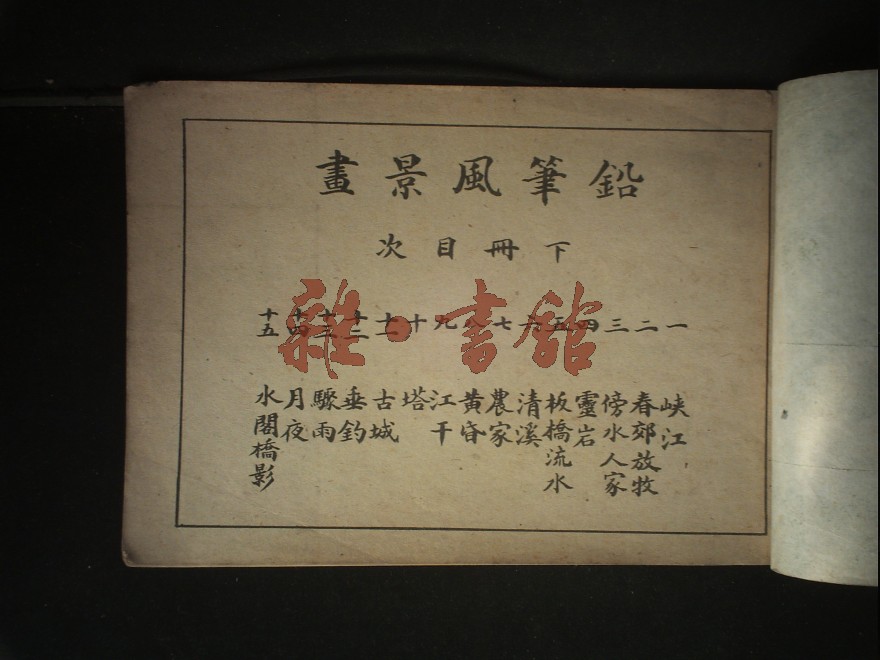 鉛筆風景畫
下冊目次
一 峽江
二 春郊放牧
三 傍水人家
四 靈岩
五 板橋流水
六 清溪
七 農家
八 黄昏
九 江干
十 塔
十一 古城
十二 垂釣
十三 驟雨
十四 月夜
十五 水閣橋影
雜·書館